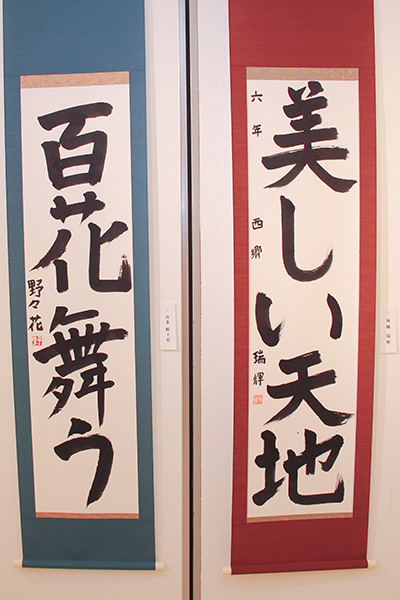 百花舞う
野々花
美しい天地
六年 西郷 瑞輝